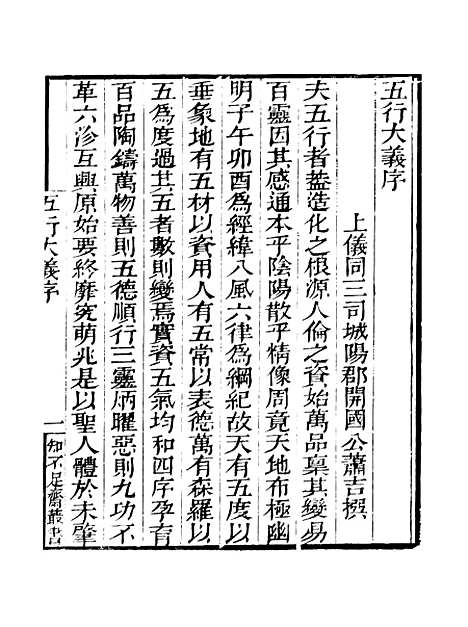 五行大義序
上儀同三司城陽郡開國公蕭吉撰
夫五行者葢造化之根源人倫之資始萬品稟其變易
百靈因其感通本乎陰陽散乎精像周竟天地布極幽
明子午卯酉爲經緯八風六律爲綱紀故天有五度以
垂象地有五材以資用人有五常以表德萬有森羅以
五爲度過其五者數則變焉實資五氣均和四序孕育
百品陶鑄萬物善則五德順行三靈炳曜惡則九功不
革六沴互興原始要終靡究萌兆是以聖人體於未肇
五行大義序
一
知不足齋叢書